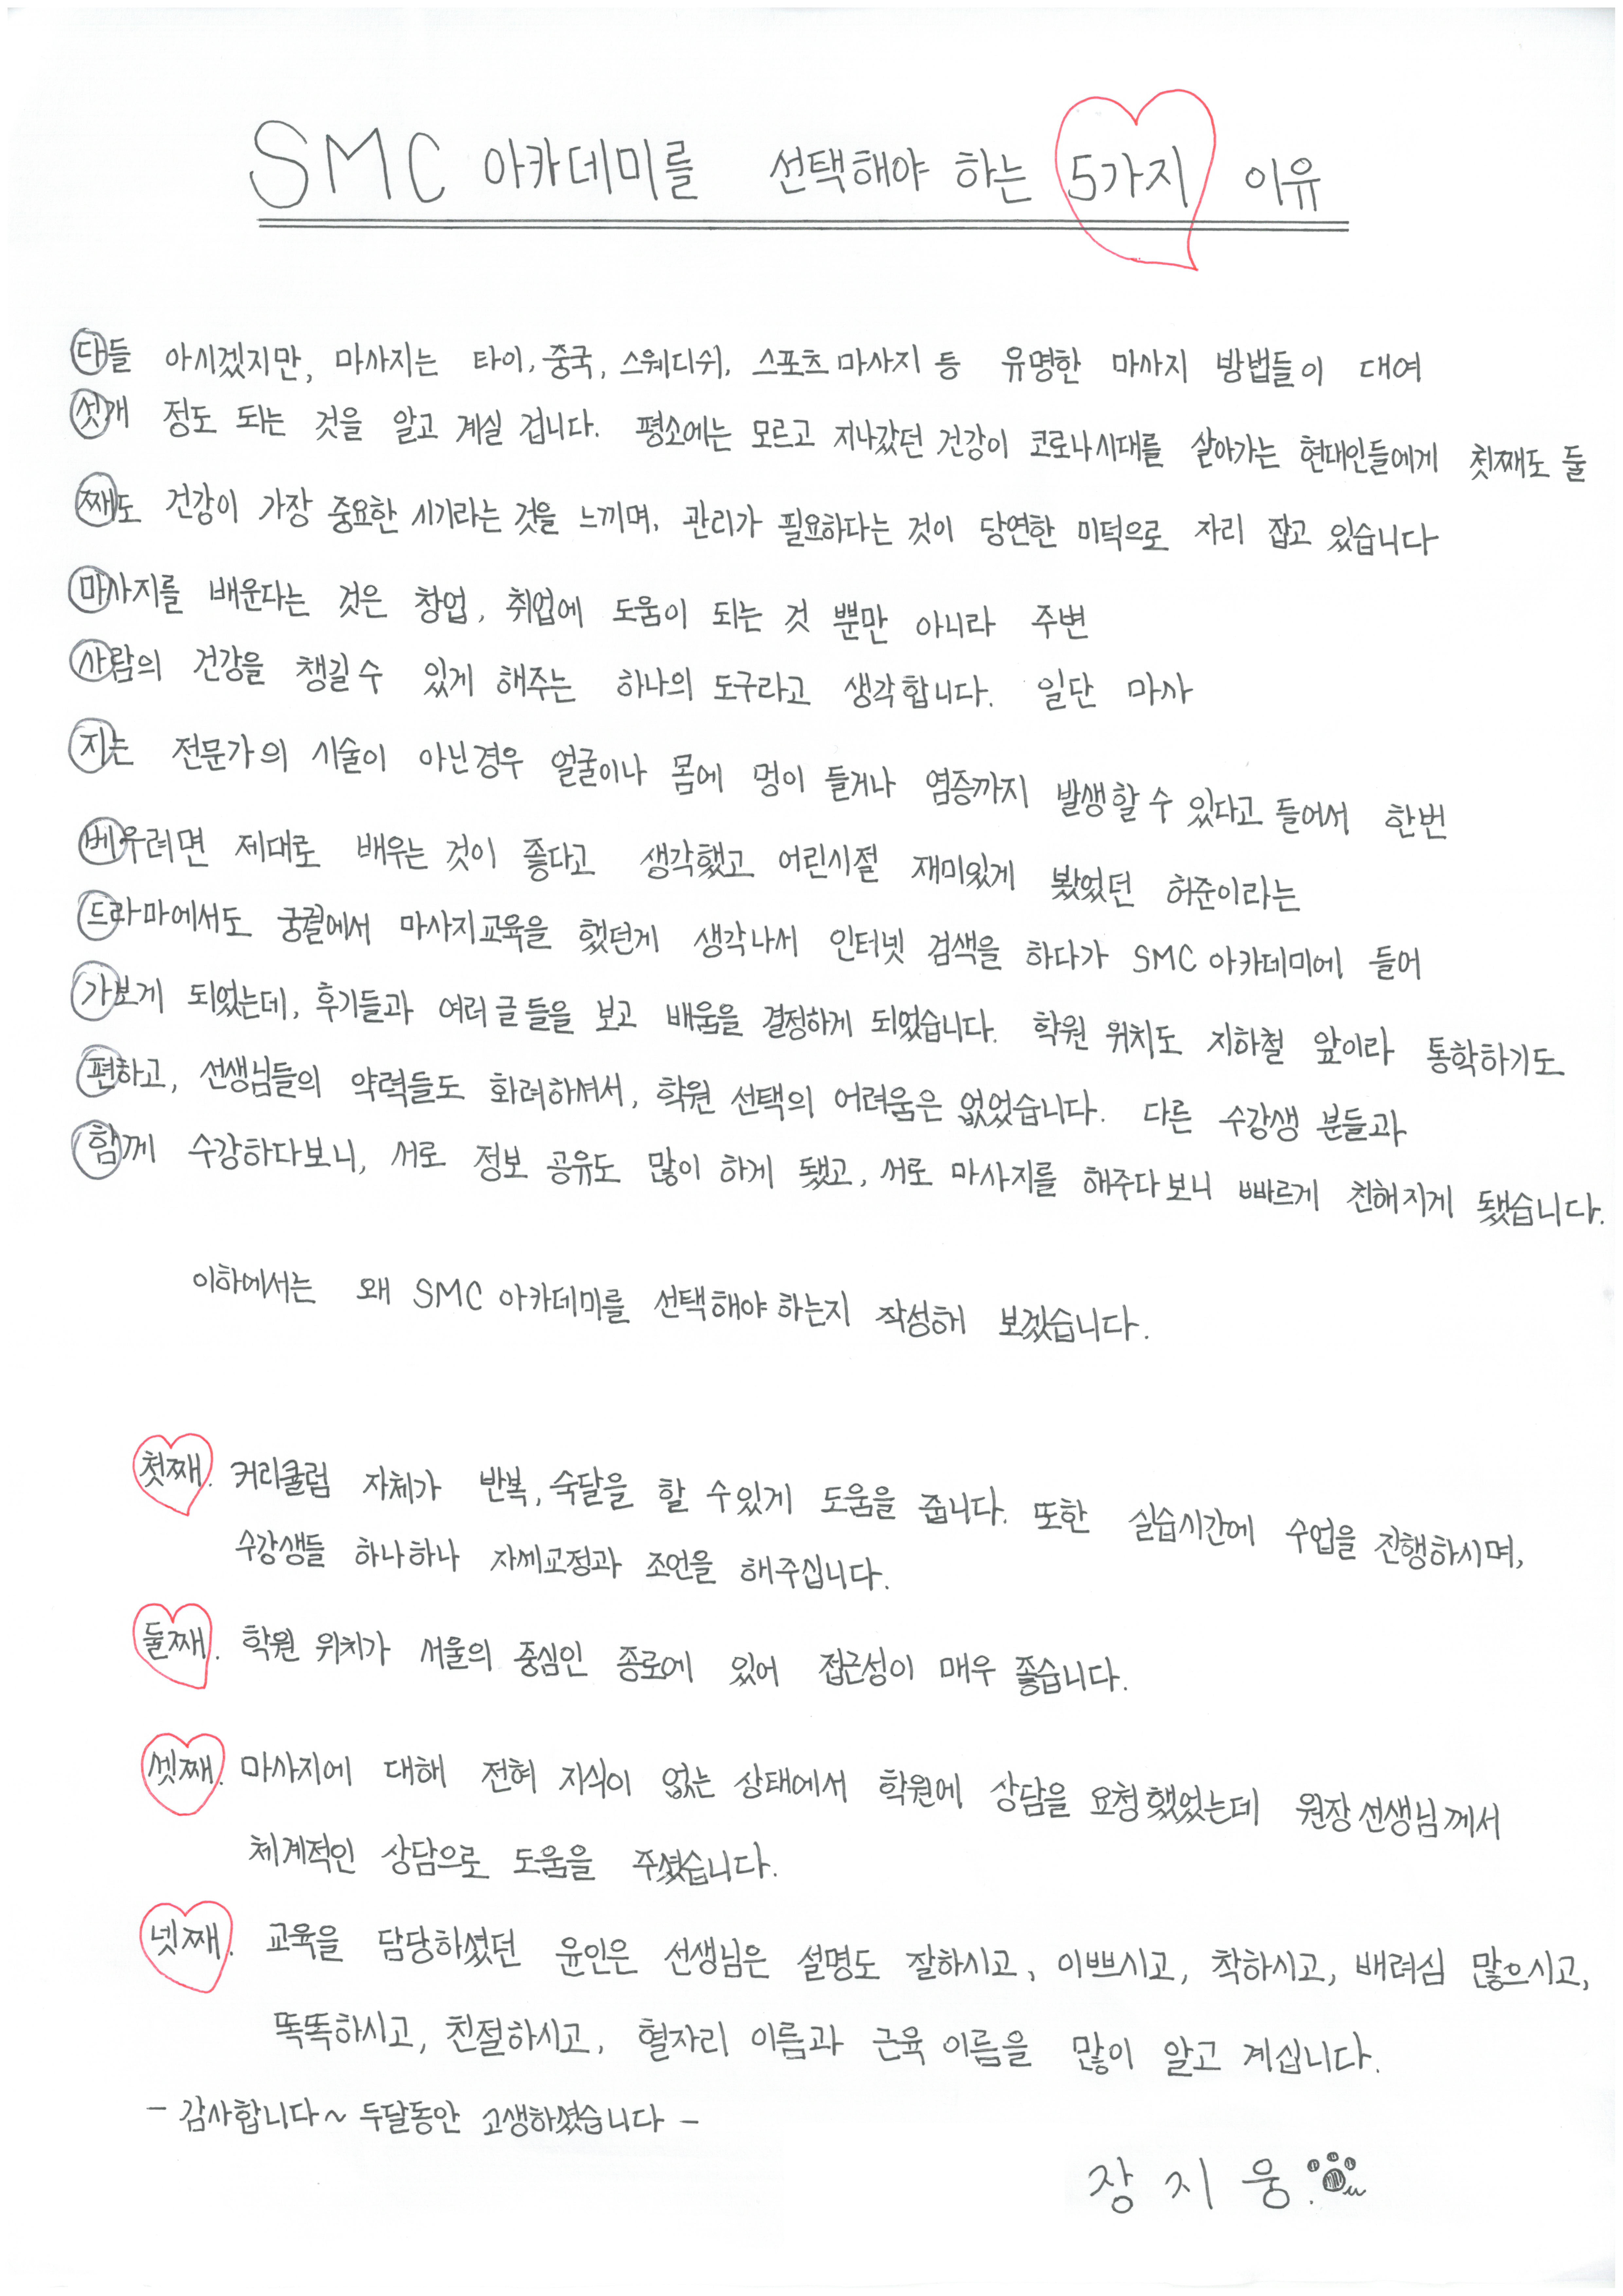 SMC 아카데미를 선택해야 하는 5가지 이유
다들 아시겠지만, 마사지는 타이, 중국, 스웨디쉬, 스포츠 마사지 등 유명한 마사지 방법들이 대여
섯개 정도 되는 것을 알고 계실 겁니다. 평소에는 모르고 지나갔던 건강이 코로나시대를 살아가는 현대인들에게 첫째도 둘
째도 건강이 가장 중요한 시기라는 것을 느끼며, 관리가 필요하다는 것이 당연한 미덕으로 자리 잡고 있습니다
마사지를 배운다는 것은 창업, 취업에 도움이 되는 것 뿐만 아니라 주변
사람의 건강을 챙길 수 있게 해주는 하나의 도구라고 생각합니다. 일단 마사
지는 전문가의 시술이 아닌경우 얼굴이나 몸에 멍이 들거나 염증까지 발생할 수 있다고 들어서 한번
베우려면 제대로 배우는 것이 좋다고 생각했고 어린시절 재미있게 봤었던 허준이라는
드라마에서도 궁궐에서 마사지교육을 했던게 생각나서 인터넷 검색을 하다가 SMC 아카데미에 들어
가보게 되었는데, 후기들과 여러 글들을 보고 배움을 결정하게 되었습니다. 학원 위치도 지하철 앞이라 통학하기도
편하고, 선생님들의 약력들도 화려하셔서, 학원 선택의 어려움은 없었습니다. 다른 수강생 분들과
함께 수강하다보니, 서로 정보 공유도 많이 하게 됐고, 서로 마사지를 해주다보니 빠르게 친해지게 됐습니다.
이하에서는 왜 SMC 아카데미를 선택해야 하는지 작성해 보겠습니다.
첫째. 커리큘럼 자체가 반복, 숙달을 할 수있게 도움을 줍니다. 또한 실습시간에 수업을 진행하시며,
수강생들 하나하나 자세교정과 조언을 해주십니다.
둘째. 학원 위치가 서울의 중심인 종로에 있어 접근성이 매우 좋습니다.
셋째. 마사지에 대해 전혀 지식이 없는 상태에서 학원에 상담을 요청했었는데 원장선생님께서
체계적인 상담으로 도움을 주셨습니다.
넷째. 교육을 담당하셨던 윤인은 선생님은 설명도 잘하시고, 이쁘시고, 착하시고, 배려심 많으시고,
똑똑하시고, 친절하시고, 혈자리 이름과 근육 이름을 많이 알고 계십니다.
- 감사합니다~ 두달동안 고생하셨습니다 -
장지웅.